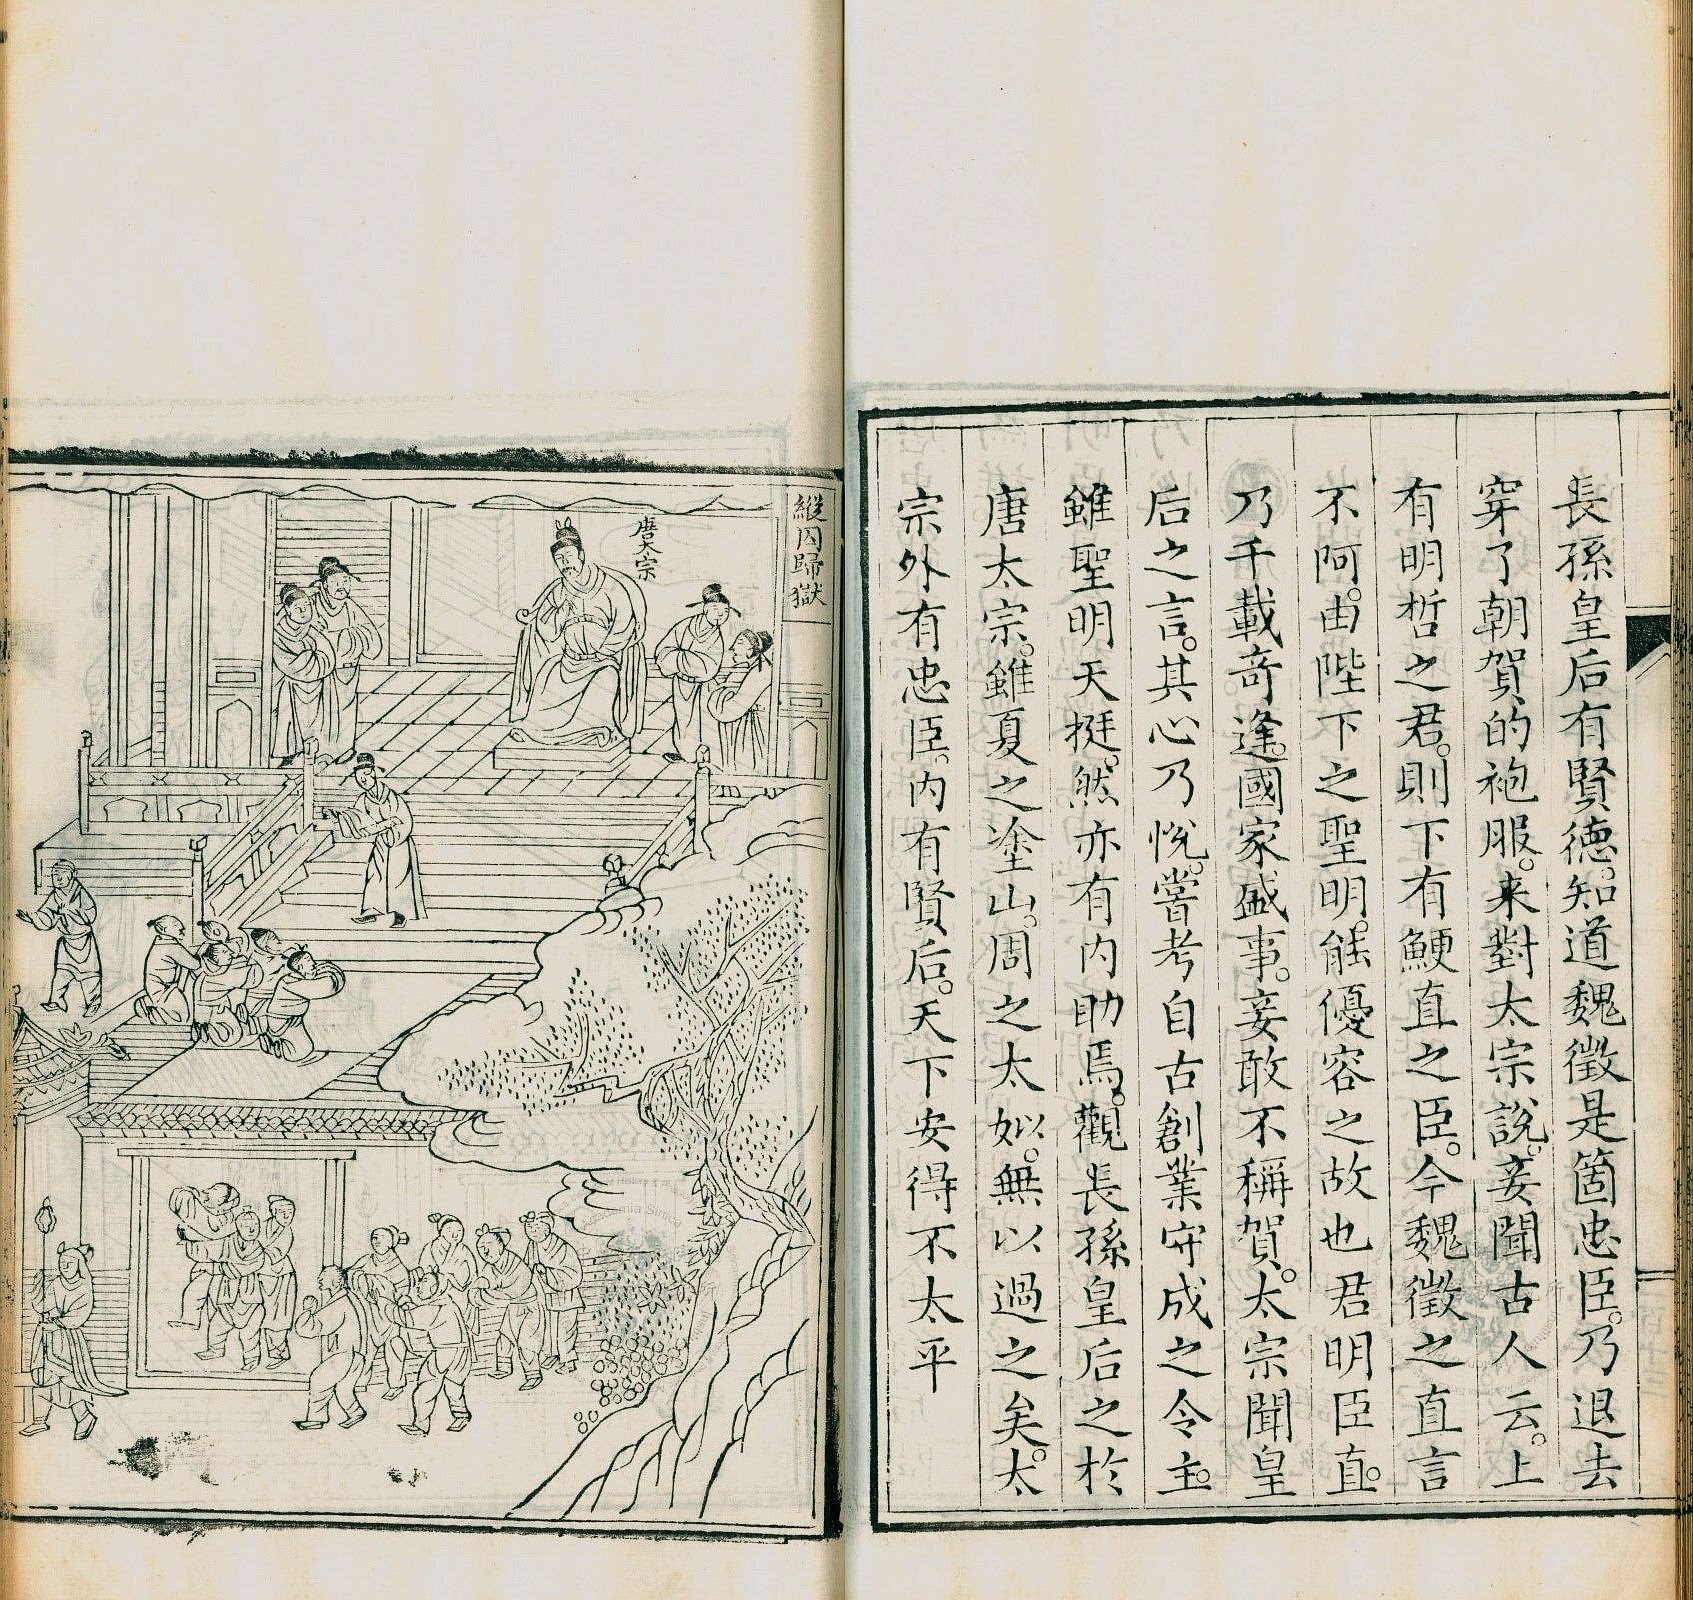 長孫皇后有賢德。知道魏徵是箇忠臣。乃退去
穿了朝賀的袍服。来對太宗說。妾聞古人云。上
有明哲之君。則下有鯁直之臣。今魏徵之直言
不阿。由陛下之聖明。能優容之故也君明臣直。
乃千載奇逢。國家盛事。妾敢不稱賀。太宗聞皇
后之言。其心乃悅。嘗考自古創業守成之令主。
雖聖明天挺。然亦有内助焉。觀長孫皇后之於
唐太宗。雖夏之塗山。周之太姒。無以過之矣。太
宗外有忠臣。内有賢后。天下安得不太平
縱囚歸獄
唐太宗